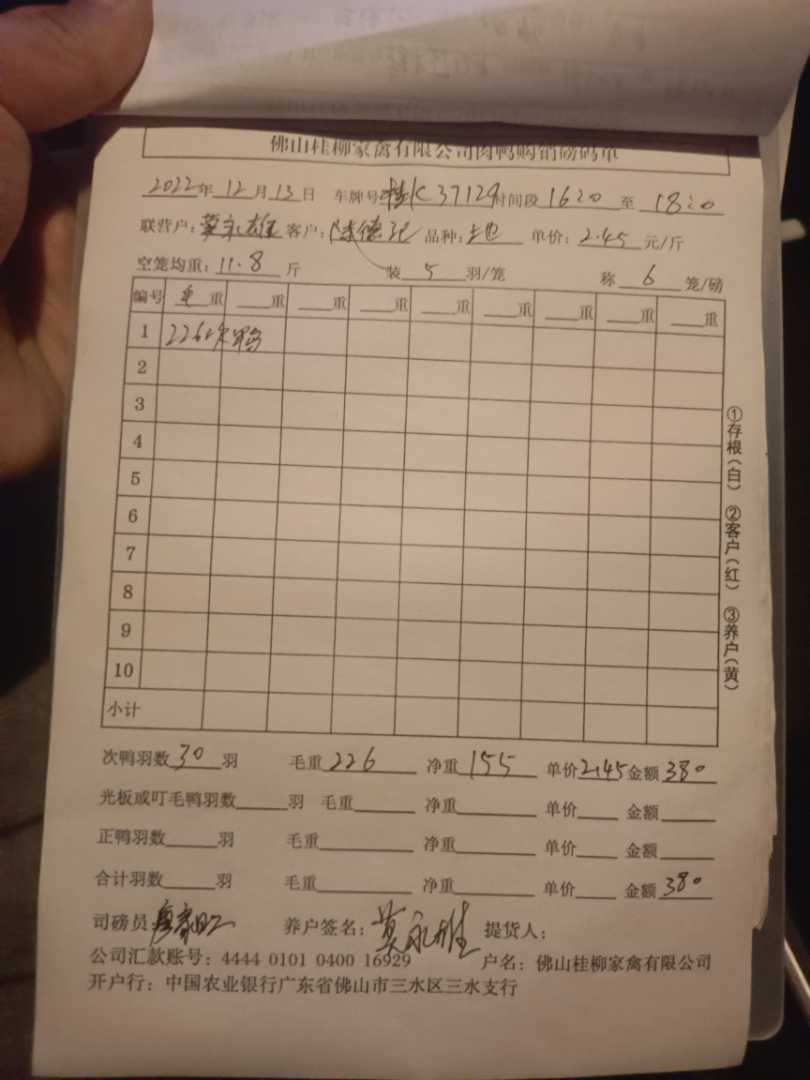 佛山桂柳家禽有限公司肉鸭购销磅码单
2022年12月13日 车牌号:桂K37129时间段 16:20 至 18:20
联营户:莫永雄 客户:陈德记 品种: 单价:2.45 元/斤
空笼均重:11.8 斤 装 5 羽/笼 称 6 笼/磅
编号 毛重 重 重 重 重 重 重 重 重
1 226 次鸭
2
3
4
5
6
7
8
9
10
小计
次鸭羽数 30 羽 毛重 226 净重 155 单价 2.45 金额 380
光板或叮毛鸭羽数 羽 毛重 净重 单价 金额
正鸭羽数 羽 毛重 净重 单价 金额
合计羽数 羽 毛重 净重 单价 金额 380
司磅员: 养户签名:莫永雄 提货人:
公司汇款账号:4444 0101 0400 16929 户名:佛山桂柳家禽有限公司
开户行:中国农业银行广东省佛山市三水区三水支行
①存根(白) ②客户(红) ③养户(黄)